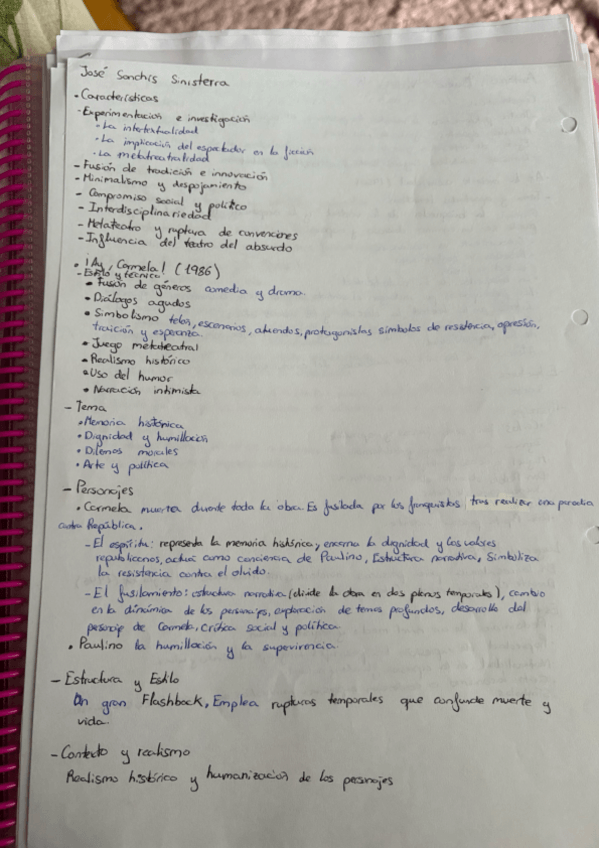 José Sanchis Sinisterra
• Características
- Experimentación e investigación
- La intertextualidad
- La implicación del espectador en la ficción
- La metateatralidad
- Fusión de tradición e innovación
- Minimalismo y despojamiento
- Compromiso social y político
- Interdisciplinariedad
- Metateatro y ruptura de convenciones
- Influencia del teatro del absurdo
• ¡Ay, Carmela! (1986)
- Estilo y técnica:
• Fusión de géneros comedia y drama.
• Diálogos agudos
• Simbolismo telas, escenarios, atuendos, protagonistas símbolos de resistencia, opresión,
traición y esperanza.
• Juego metateatral
• Realismo histórico
• Uso del humor
• Narración intimista
- Tema
• Memoria histórica
• Dignidad y humillación
• Dilemas morales
• Arte y política
- Personajes
• Carmela muerta durante toda la obra. Es fusilada por los franquistas tras realizar una parodia
contra República.
- El espíritu: representa la memoria histórica, encarna la dignidad y los valores
republicanos, actúa como conciencia de Paulino, Estructura narrativa, Simboliza
la resistencia contra el olvido.
- El fusilamiento: estructura narrativa (divide la obra en dos planos temporales), cambio
en la dinámica de los personajes, exploración de temas profundos, desarrollo del
personaje de Carmela, crítica social y política
• Paulino la humillación y la supervivencia.
- Estructura y Estilo
Un gran Flashback, Emplea rupturas temporales que confunde muerte y
vida.
- Contexto y realismo
Realismo histórico y humanización de los personajes